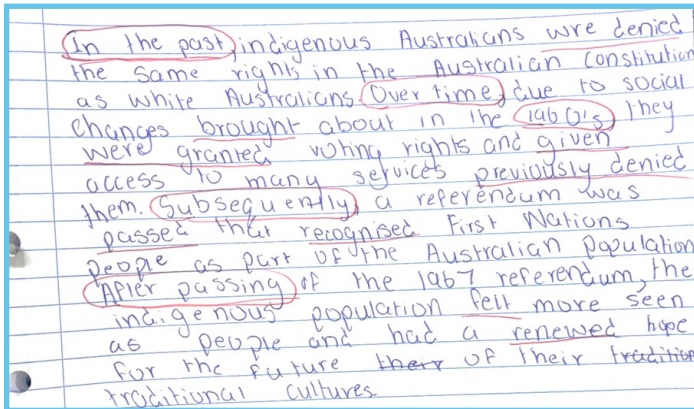 In the past, indigenous Australians wre denied
the same rights in the Australian Constitution
as white Australians. Over time, due to social
Changes brought about in the 1960's, they
were granted voting rights and given
access to many services previously denied
them. Subsequently, a referendum was
passed that recognised First Nations
people as part of the Australian population
After passing of the 1967 referendum, the
indigenous population felt more seen
as people and had a renewed hope
for the future their of their tradition
traditional cultures.